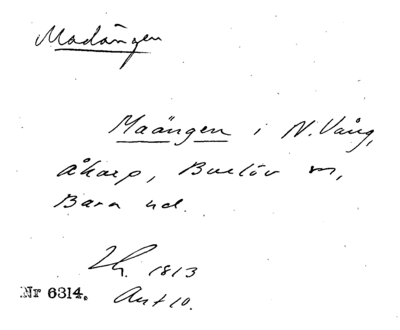 Madängen
Maängen i N. Vång,
Åkarp, Burlöv sn,
Bara hd.
1813
Nr 6314. Akt 10.